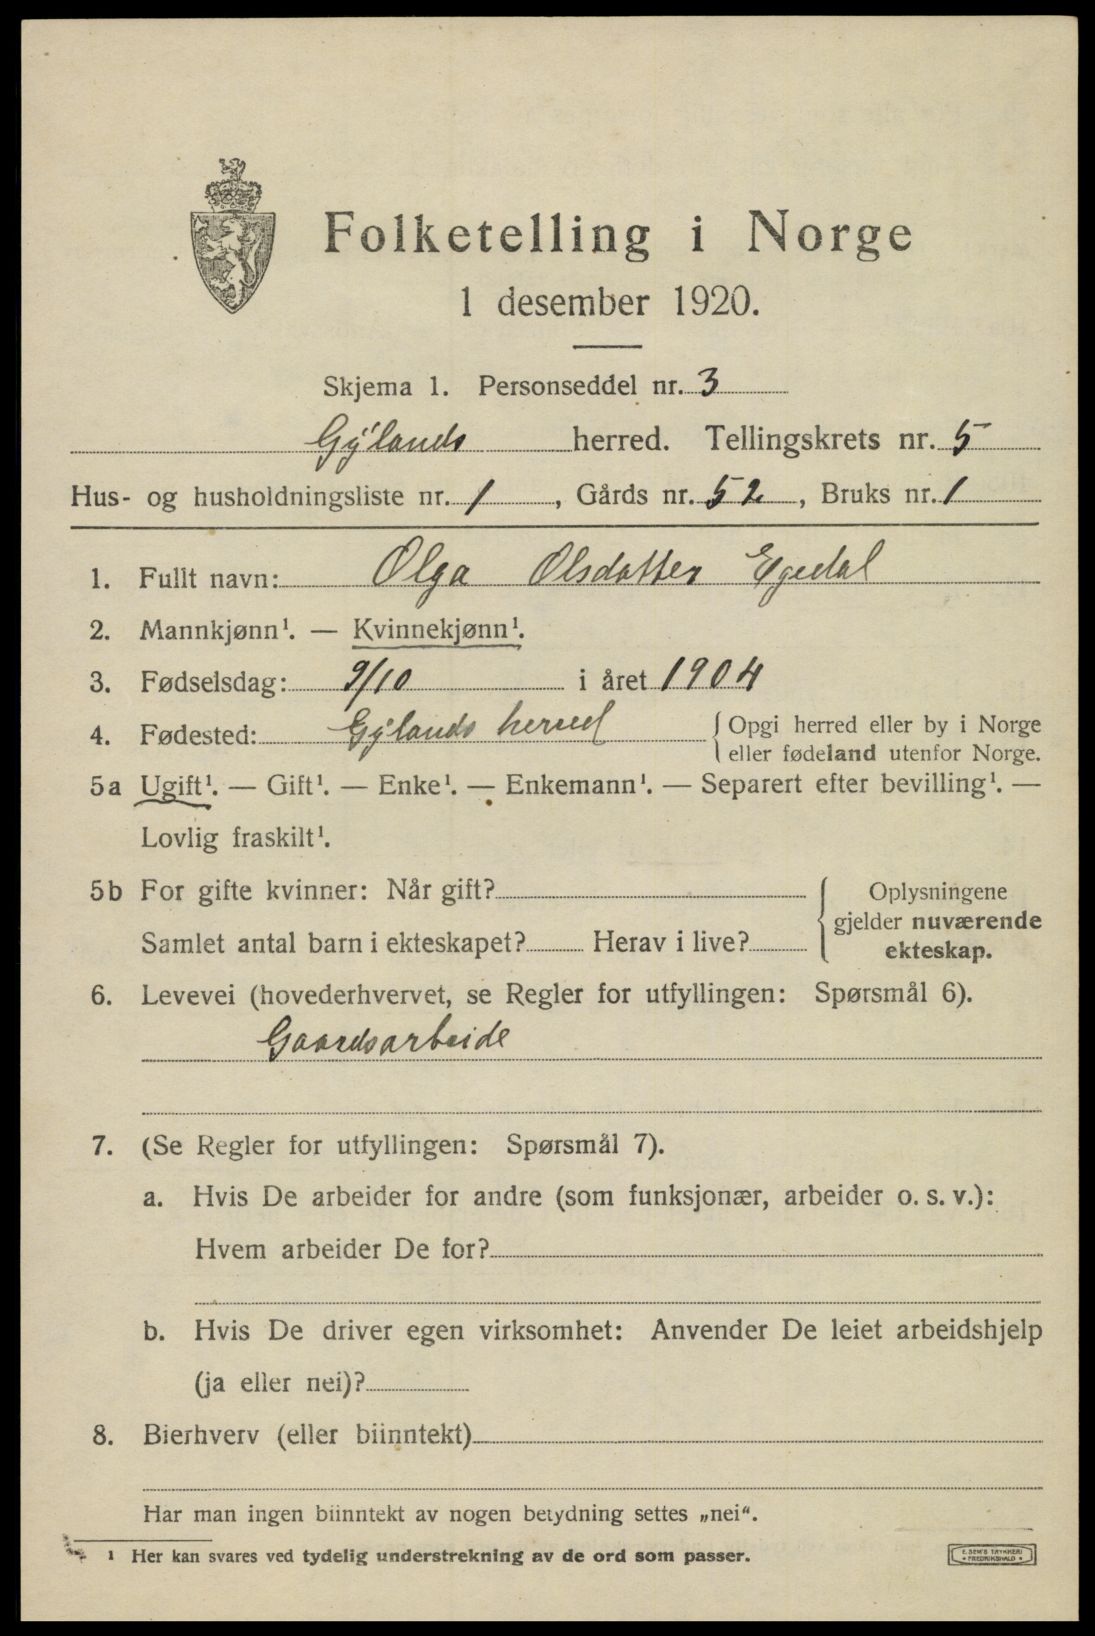 Folketelling i Norge
1 desember 1920.
Skjema 1. Personseddel nr. 3
Gÿlands herred. Tellingskrets nr. 5
Hus- og husholdningsliste nr. 1, Gårds nr. 52, Bruks nr. 1
1. Fullt navn: Olga Olsdatter Egedal
2. Mannkjønn¹. — Kvinnekjønn¹.
3. Fødselsdag: 9/10 i året 1904
4. Fødested: Gÿlands herred { Opgi herred eller by i Norge
eller fødeland utenfor Norge.
5a Ugift¹. — Gift¹. — Enke¹. — Enkemann¹. — Separert efter bevilling¹. —
Lovlig fraskilt¹.
5b For gifte kvinner: Når gift? { Oplysningene
gjelder nuværende
Samlet antal barn i ekteskapet? Herav i live? ekteskap.
6. Levevei (hovederhvervet, se Regler for utfyllingen: Spørsmål 6).
Gaardsarbeide
7. (Se Regler for utfyllingen: Spørsmål 7).
a. Hvis De arbeider for andre (som funksjonær, arbeider o. s. v.):
Hvem arbeider De for?
b. Hvis De driver egen virksomhet: Anvender De leiet arbeidshjelp
(ja eller nei)?
8. Bierhverv (eller biinntekt)
Har man ingen biinntekt av nogen betydning settes „nei“.
¹ Her kan svares ved tydelig understrekning av de ord som passer.
E. SEM'S TRYKKERI
FREDRIKSHALD